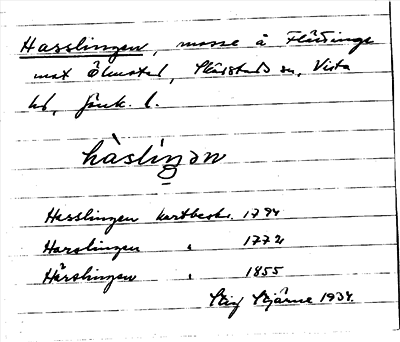 Hasslingen, mosse å Flättinge
mot Ölmstad, Skärstads sn, Vista
hd, Jönk. l.
hàslinǥən
Hasslingen kartbeskr. 1794
Harslingen " 1772
Härslingen " 1855
Stig Stjärne 1934.